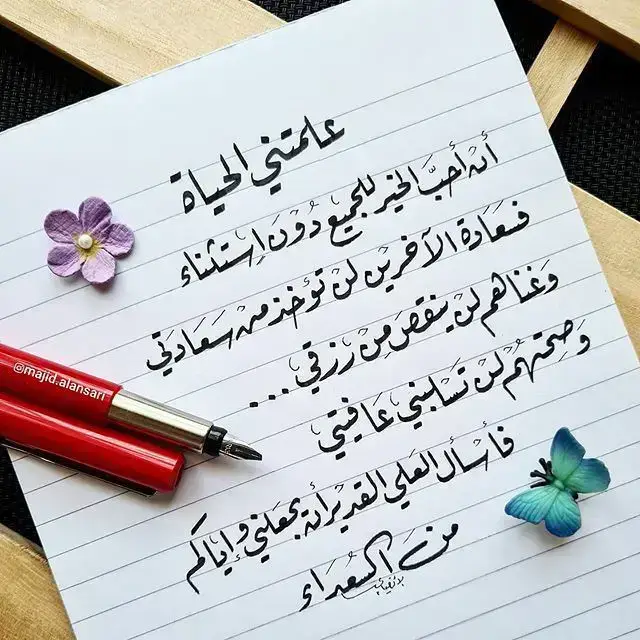 علمتني الحياة
أن أحبَّ الخير للجميع دُوْنَ اِسْتثناء
فسَعَادة الآخرين لن تؤخذ من سَعَادَتي
وَغناهم لن ينقصَ مِنْ رزقي...
وَصِحتهُم لنْ تسَلبني عَافيتي
فأسأل العلي القدير أن يجعلني وإياكم
منَ السعَداء
@majid.alansari